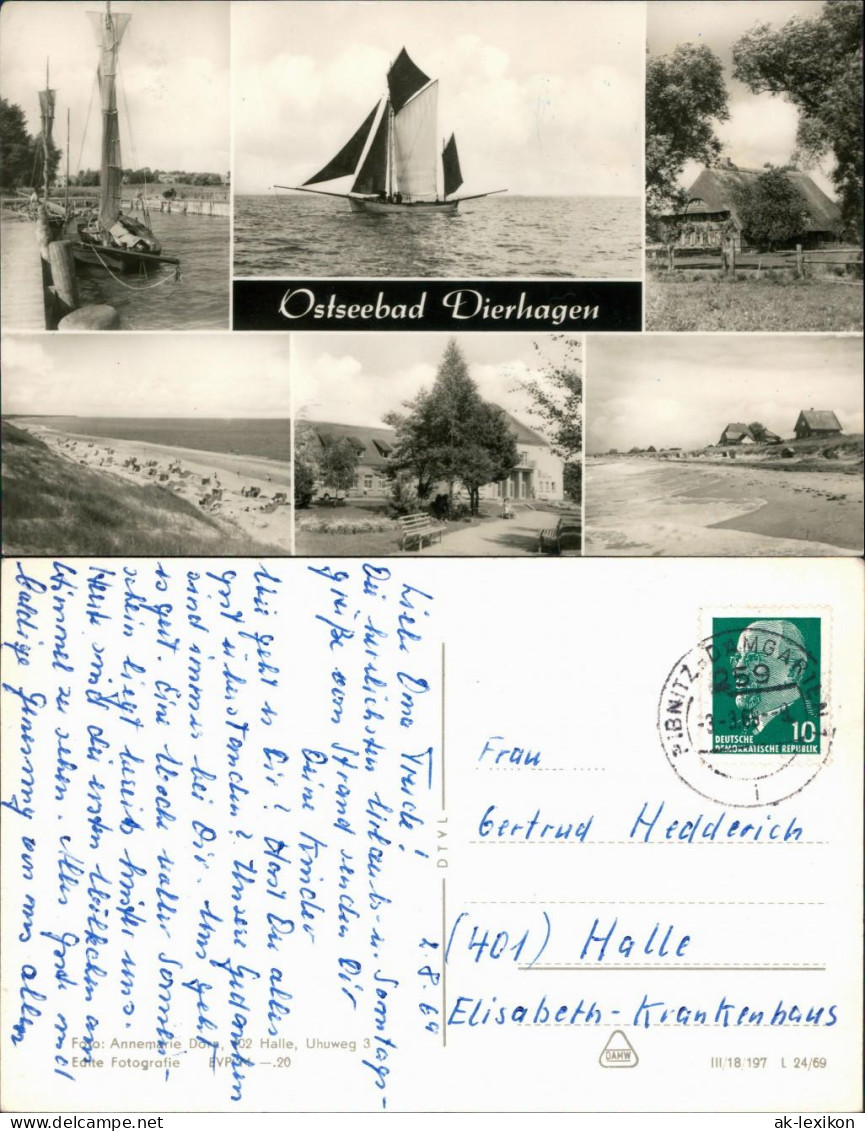 Ostseebad Dierhagen
2.8.69
Liebe Oma Trude!
Die herzlichsten Urlaubs- u. Sonntags-
grüße vom Strand senden Dir
Deine Kinder
Wie geht es Dir? Hast Du alles
gut überstanden? Unsere Gedanken
sind immer bei Dir. Uns geht
es gut. Eine Woche voller Sonnen-
schein liegt bereits hinter uns.
Heute sind die ersten Wölkchen am
Himmel zu sehen. Alles Gute und
baldige Genesung von uns allen
DTVL
RIBNITZ-DAMGARTEN 1
259
10
DEUTSCHE
DEMOKRATISCHE REPUBLIK
Frau
Gertrud Hedderich
(401) Halle
Elisabeth-Krankenhaus
Foto: Annemarie Dorn, 402 Halle, Uhuweg 3
Echte Fotografie EVP —.20
DAMW
III/18/197 L 24/69
ak-lexikon